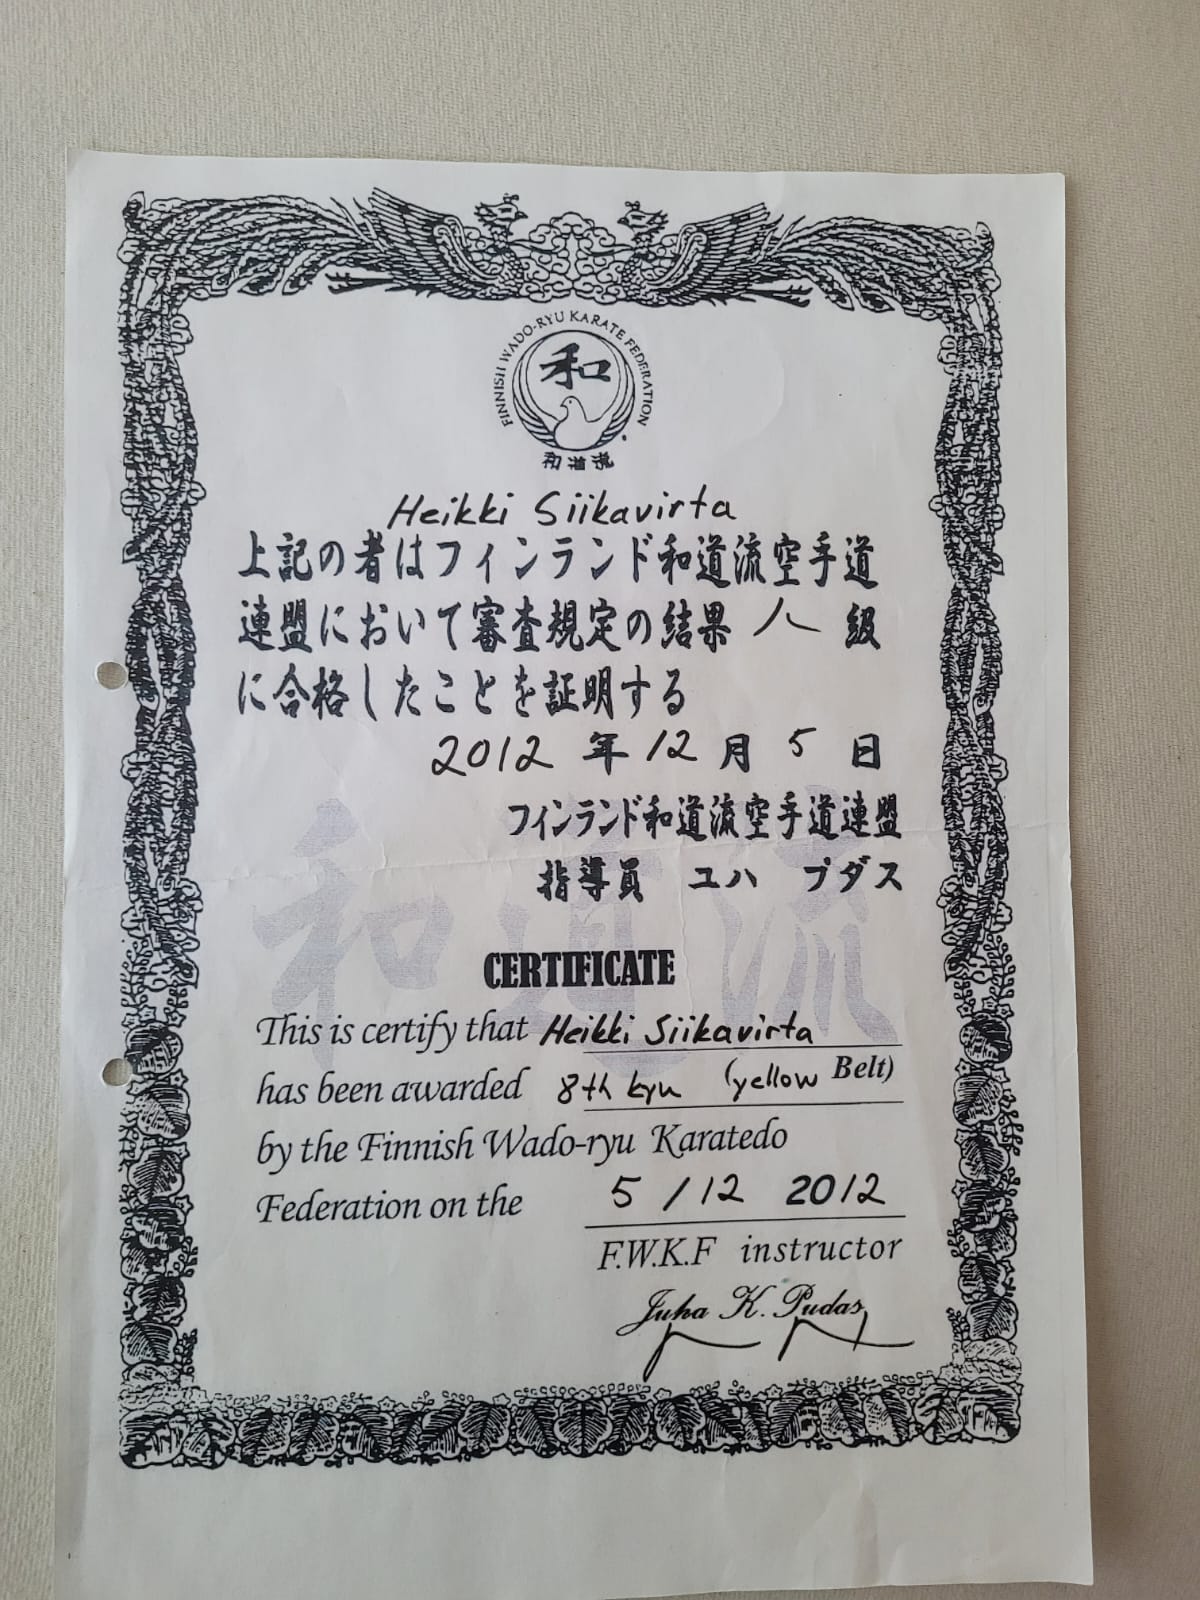 FINNISH WADO-RYU KARATE FEDERATION
和
和道流
Heikki Siikavirta
上記の者はフィンランド和道流空手道
連盟において審査規定の結果 八 級
に合格したことを証明する
2012 年 12 月 5 日
フィンランド和道流空手道連盟
指導員 ユハ プダス
和道流
CERTIFICATE
This is certify that Heikki Siikavirta
has been awarded 8th kyu (yellow Belt)
by the Finnish Wado-ryu Karatedo
Federation on the 5 / 12 2012
F.W.K.F instructor
Juha K. Pudas